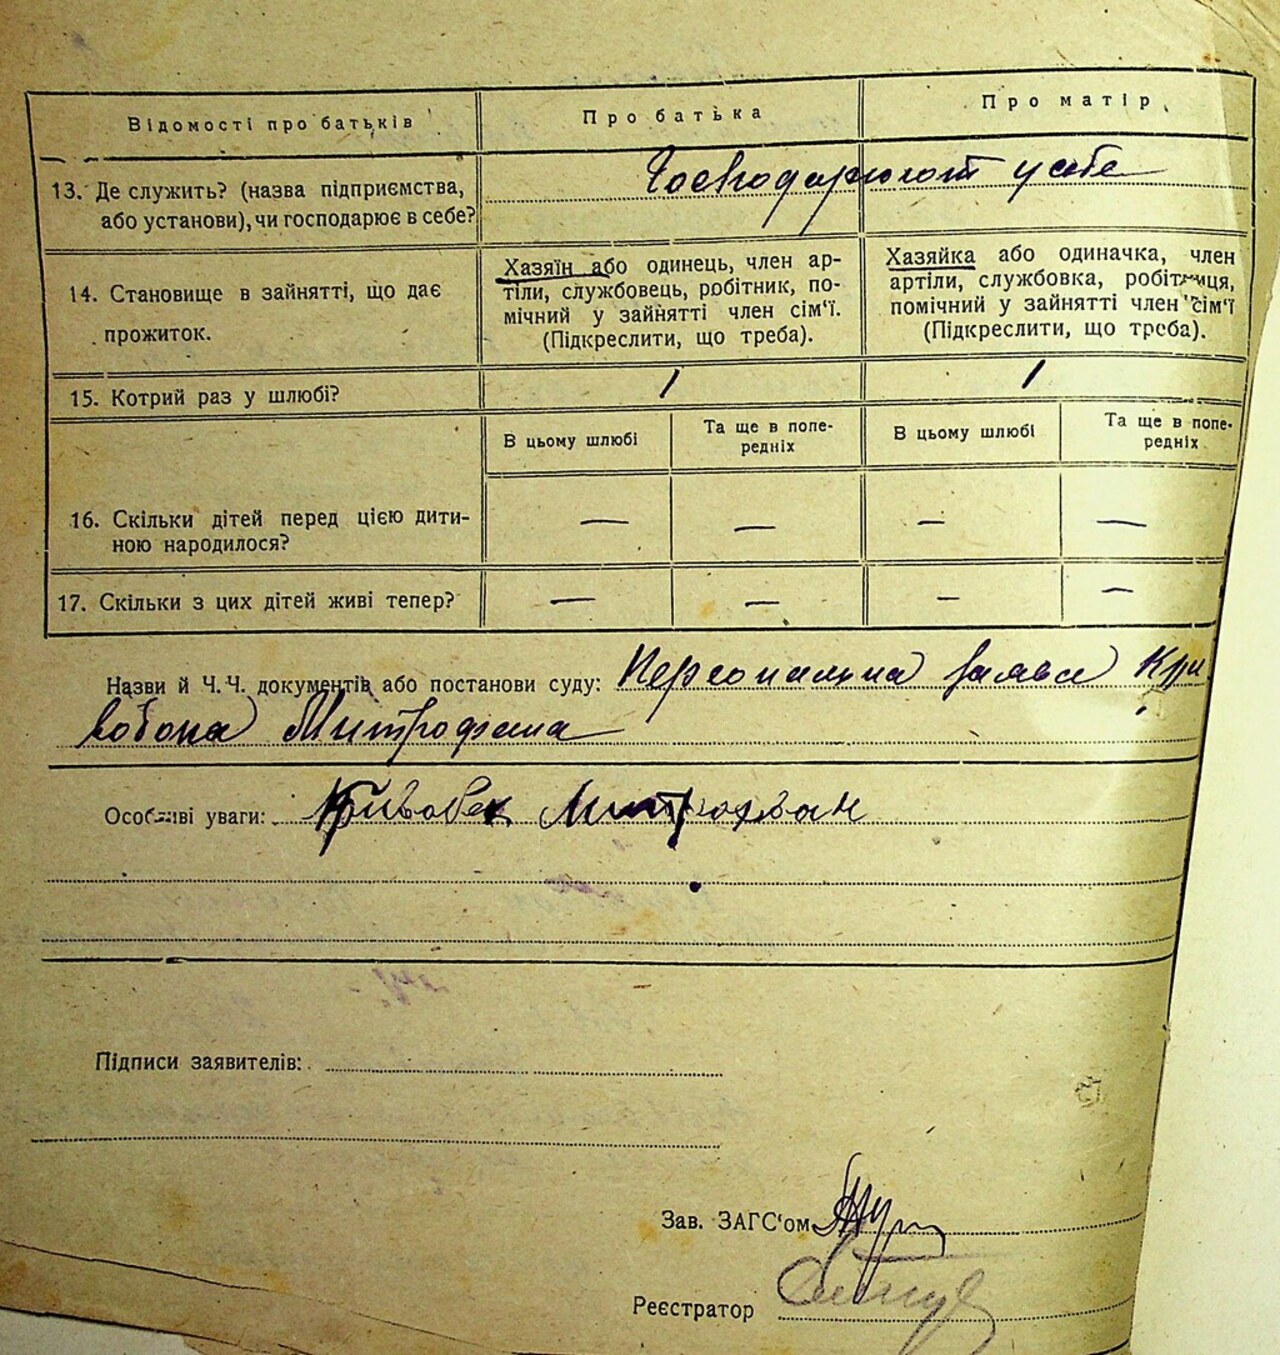 Відомості про батьків
Про батька
Про матір
13. Де служить? (назва підприємства,
або установи), чи господарює в себе?
у себе
14. Становище в зайнятті, що дає
прожиток.
Хазяїн або одинець, член ар-
тіли, службовець, робітник, по-
мічний у зайнятті член сім'ї.
(Підкреслити, що треба).
Хазяйка або одиначка, член
артіли, службовка, робітниця,
помічний у зайнятті член сім'ї
(Підкреслити, що треба).
15. Котрий раз у шлюбі?
1
1
В цьому шлюбі
Та ще в попе-
редніх
В цьому шлюбі
Та ще в попе-
редніх
16. Скільки дітей перед цією дити-
ною народилося?
— — — —
17. Скільки з цих дітей живі тепер?
— — — —
Назви й Ч.Ч. документів або постанови суду: Персональна заява Кри
вобока Митрофана
Особливі уваги: Кривобок Митрофан
Підписи заявителів:
Зав. ЗАГС'ом
Реєстратор